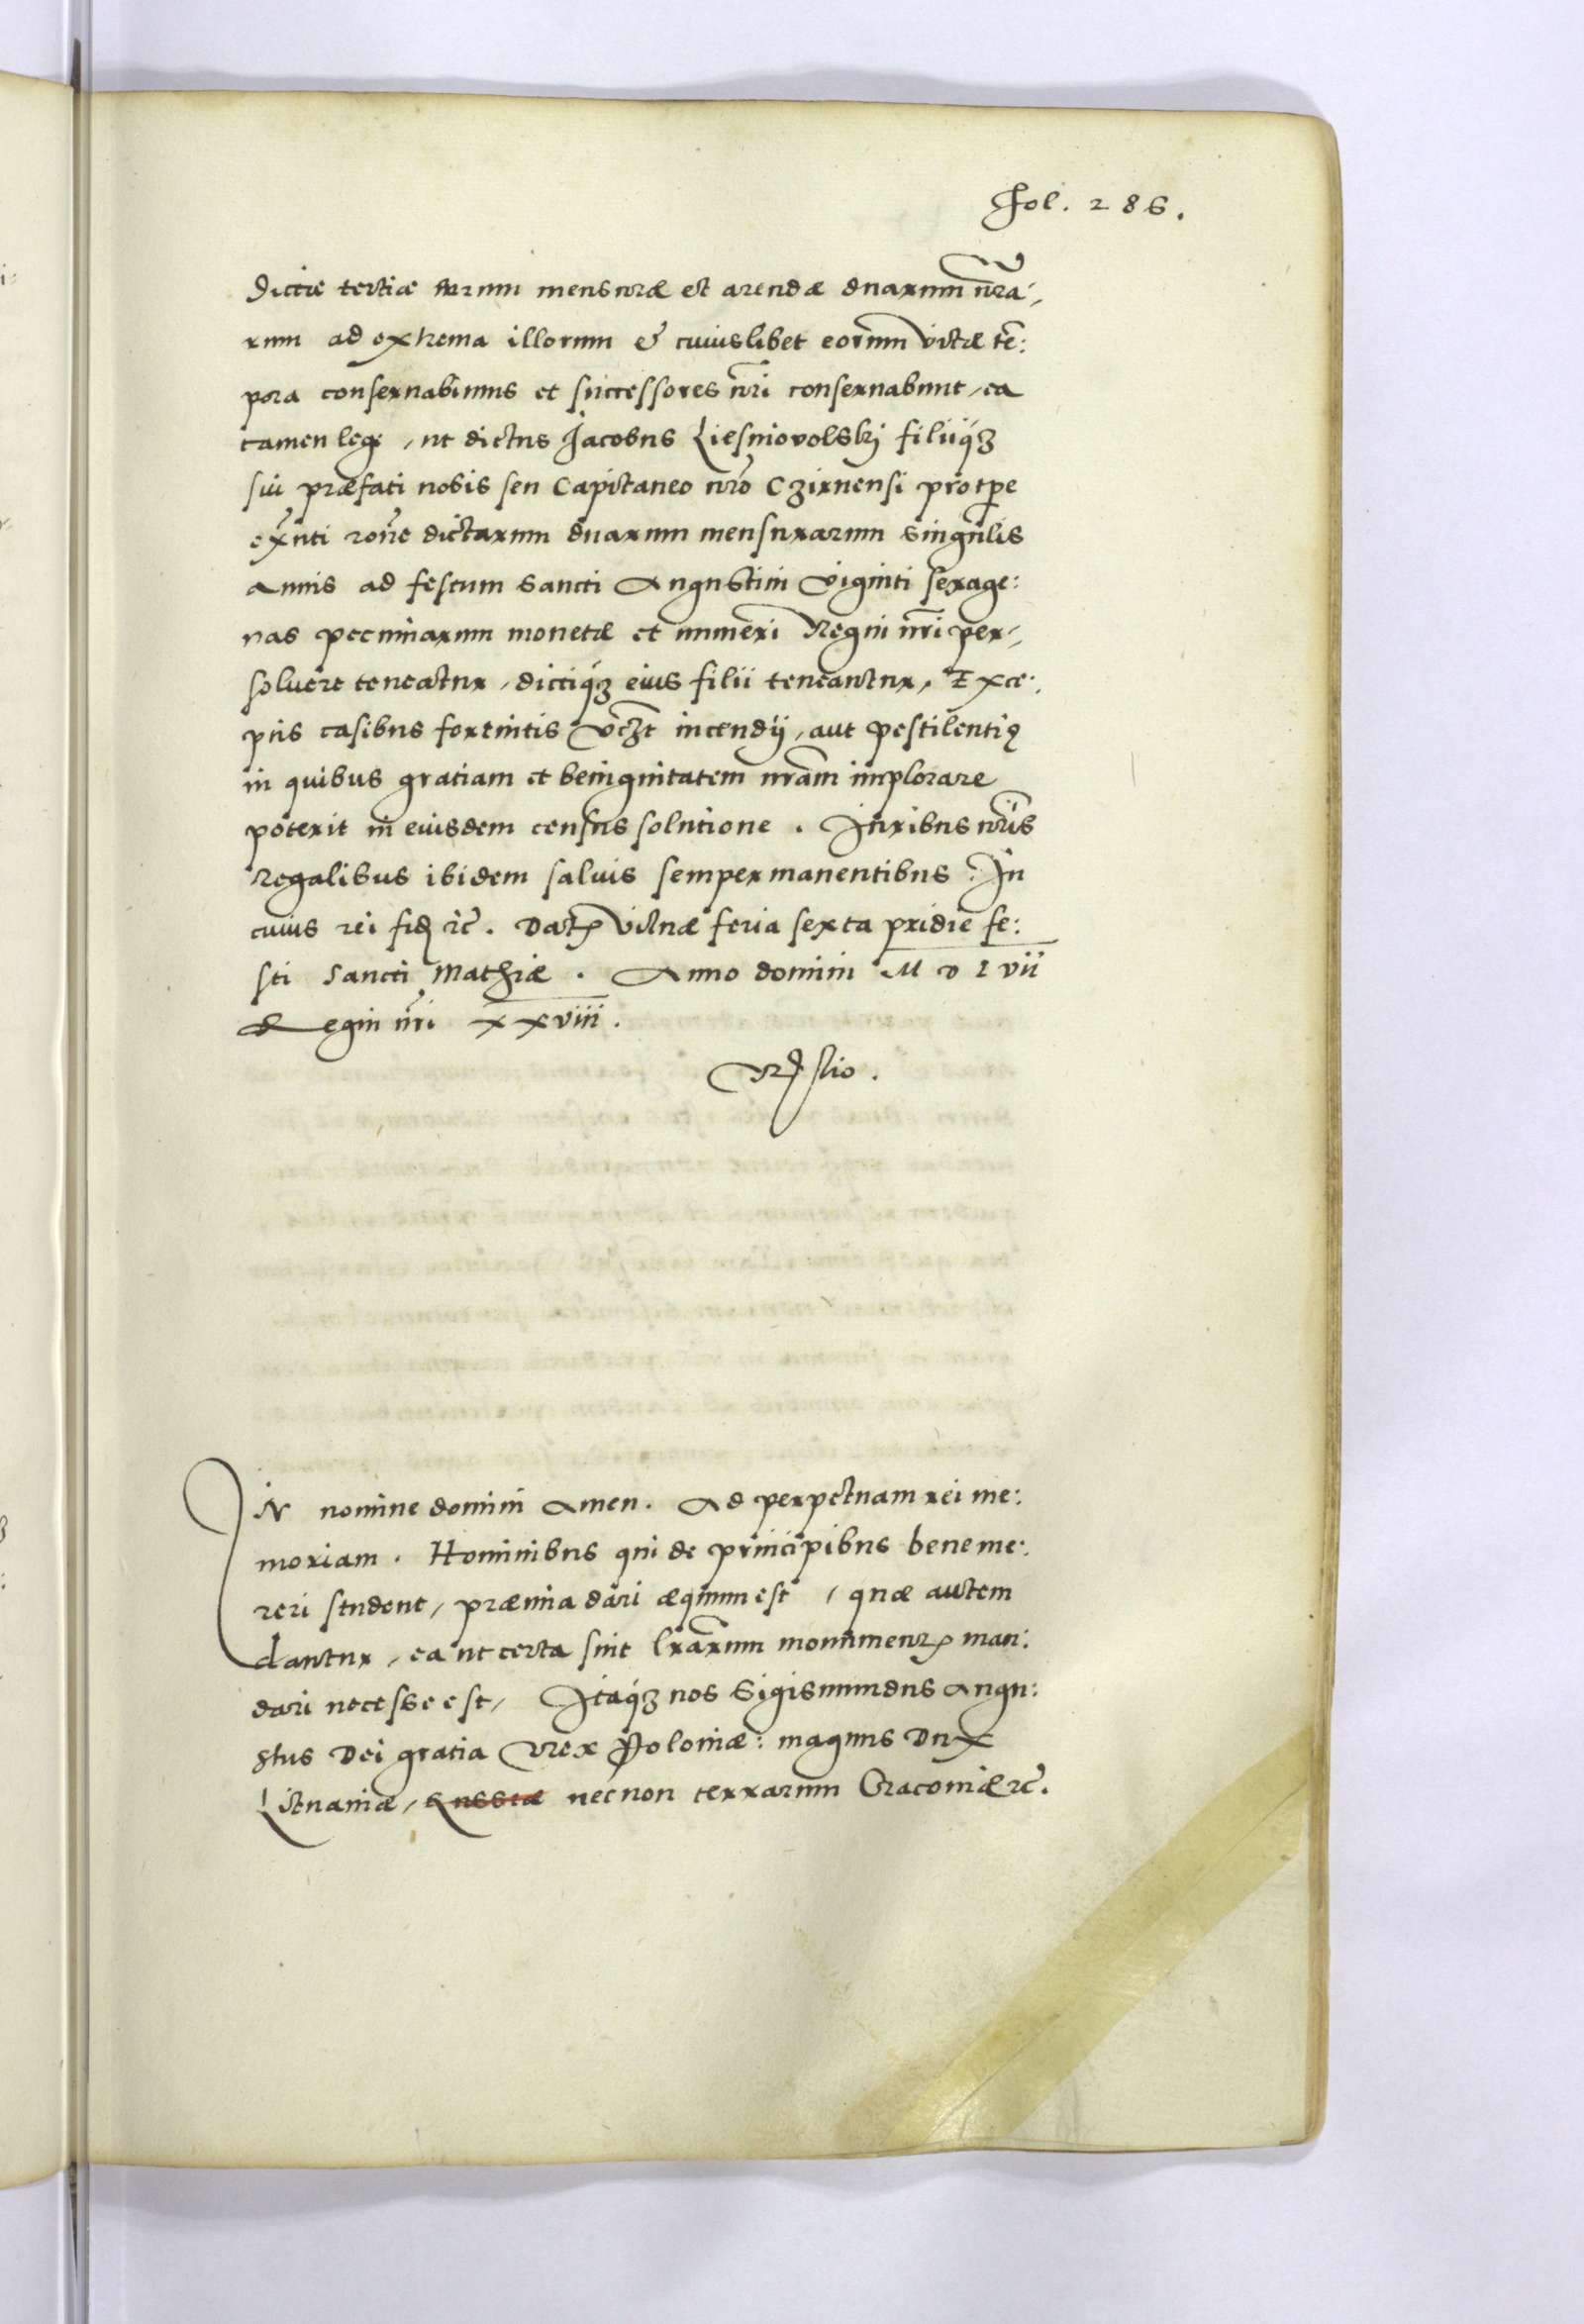 Fol. 286.
dictæ tertiæ mensuræ et arendæ duarum nr̃a-
rum ad extrema illorum & cuiuslibet eorum vitæ tem:
pora conservabimus et successores nr̃i conservabunt, ea
tamen lege, ut dictus Jacobus Liesniovolskj filiiq́ʒ
sui præfati nobis seu Capitaneo nr̃o Czirnensi pro tp̃e
ex̃nti ror̃e dictarum duarum mensurarum singulis
annis ad festum Sancti Augustini viginti sexage:
nas pecuniarum monetæ et numeri Regni nr̃i per-
solvere teneatur, dictiq́ʒ eius filii teneantur, Exce:
ptis casibus fortuitis vcʒt incendij, aut pestilentię
in quibus gratiam et benignitatem nr̃am implorare
poterit in eiusdem census solutione. Iuribus nr̃is
Regalibus ibidem salvis semper manentibus. In
cuius rei fidẽ ꝛc̃. Datꝭ Vilnæ feria sexta pridie fe:
sti Sancti Mathiæ. Anno domini M D L VII
Regni nr̃i XXVIII.
IN nomine domini Amen. Ad perpetuam rei me:
moriam. Hominibus qui de principibus bene me:
reri student, præmia dari æquum est, quæ autem
dantur, ea ut certa sint lr̃arum monumentꝭ man:
dari necesse est, Itaq́ʒ nos Sigismundus Augu:
stus Dei gratia Rex Poloniæ: magnus Dux
Lituaniæ, Russiæ nec non terrarum Cracoviæ ꝛc̃.